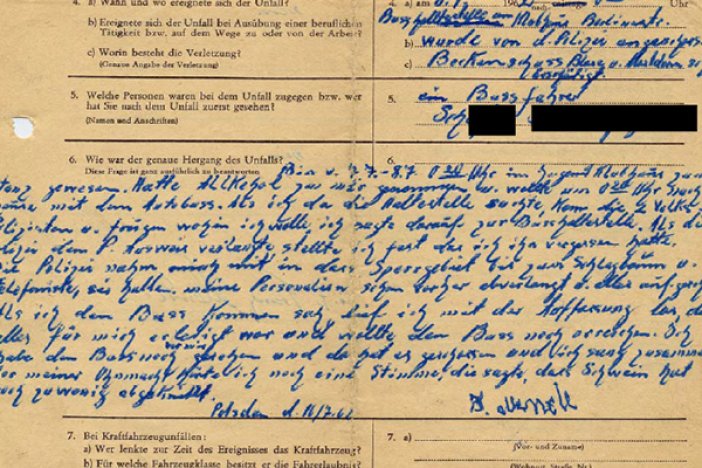 4. a) Wann und wo ereignete sich der Unfall? 4. a) am Uhr
b) Ereignete sich der Unfall bei Ausübung einer beruflichen Bushaltestelle am Klubhaus
Tätigkeit bzw. auf dem Wege zu oder von der Arbeit? b) wurde von d. Polizei angeschos
c) Worin besteht die Verletzung? c) Beckenschuss Blase u. Mastdarm
(Genaue Angabe der Verletzung)
5. Welche Personen waren bei dem Unfall zugegen bzw. wer 5. ein Bussfahrer
hat Sie nach dem Unfall zuerst gesehen? Sch
(Namen und Anschriften)
6. Wie war der genaue Hergang des Unfalls? 6.
Diese Frage ist ganz ausführlich zu beantworten Bin v. 7.7.-8.7 0 Uhr im Jugend Klubhaus zum
tanz gewesen. Hatte Allkehol zu mir genommen u. wollte um 0 Uhr nach
hause mit dem Autobuss. Als ich da die Haltestelle suchte kam die 2 Volker
Polizisten u. frugen wohin ich wolle, ich sagte darauf zur Busshaltestelle. Als die
olizei den P. Ausweis verlangte stellte ich fest das ich ihn vergessen hatte.
Die Polizei nahm mich mit in das Sperrgebiet bis zum Schlagbaum u.
telefonirte, sie hatten meine Personalien schon vorher u. alles aufge
Als ich den Buss kommen sah lief ich mit der Hoffnung los, da
alles für mich erledigt war und wollte den Buss noch erreichen. Ich
habe den Buss noch gesehen und da hat es geschossen und ich sang zusamme
vor meiner Ohnmacht hörte ich noch eine Stimme, die sagte, das Schwein hat
noch zu wenig abgekricht.
Potsdam d. 16/7.62
7. Bei Kraftfahrzeugunfällen: 7. a)
a) Wer lenkte zur Zeit des Ereignisses das Kraftfahrzeug? (Vor- und Zuname)
b) Für welche Fahrzeugklasse besitzt er die Fahrerlaubnis?